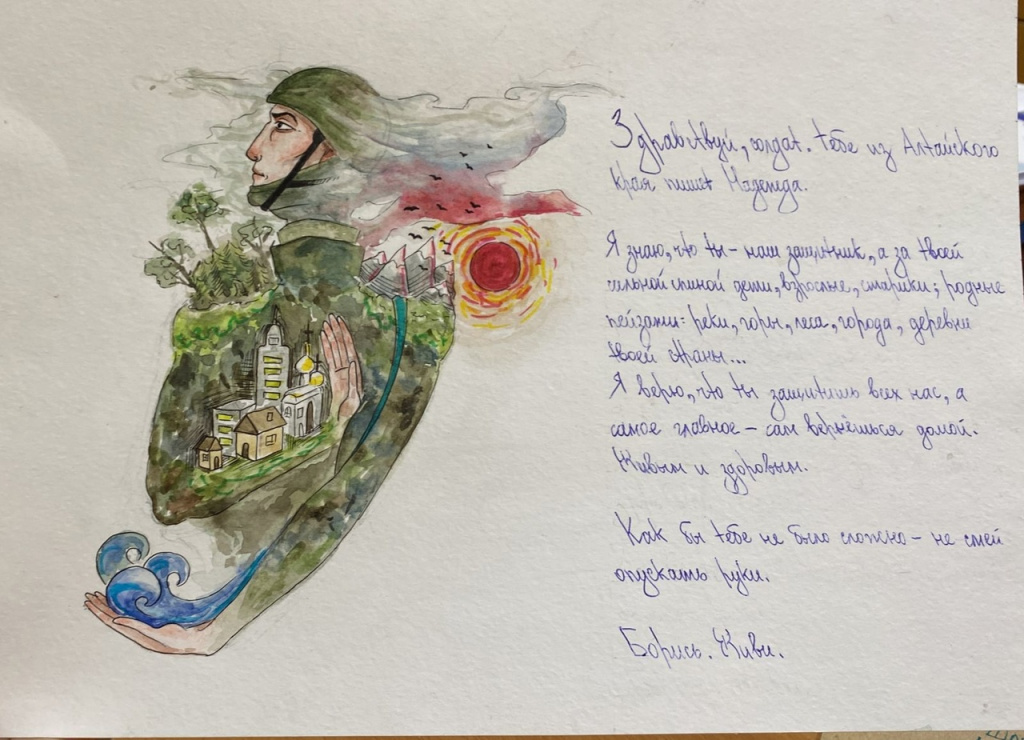 Здравствуй, солдат. Тебе из Алтайского
края пишет Надежда.
Я знаю, что ты - наш защитник, а за твоей
сильной спиной дети, взрослые, старики; родные
пейзажи: реки, горы, леса, города, деревни
твоей страны...
Я верю, что ты защитишь всех нас, а
самое главное - сам вернёшься домой.
Живым и здоровым.
Как бы тебе не было сложно - не смей
опускать руки.
Борись. Живи.